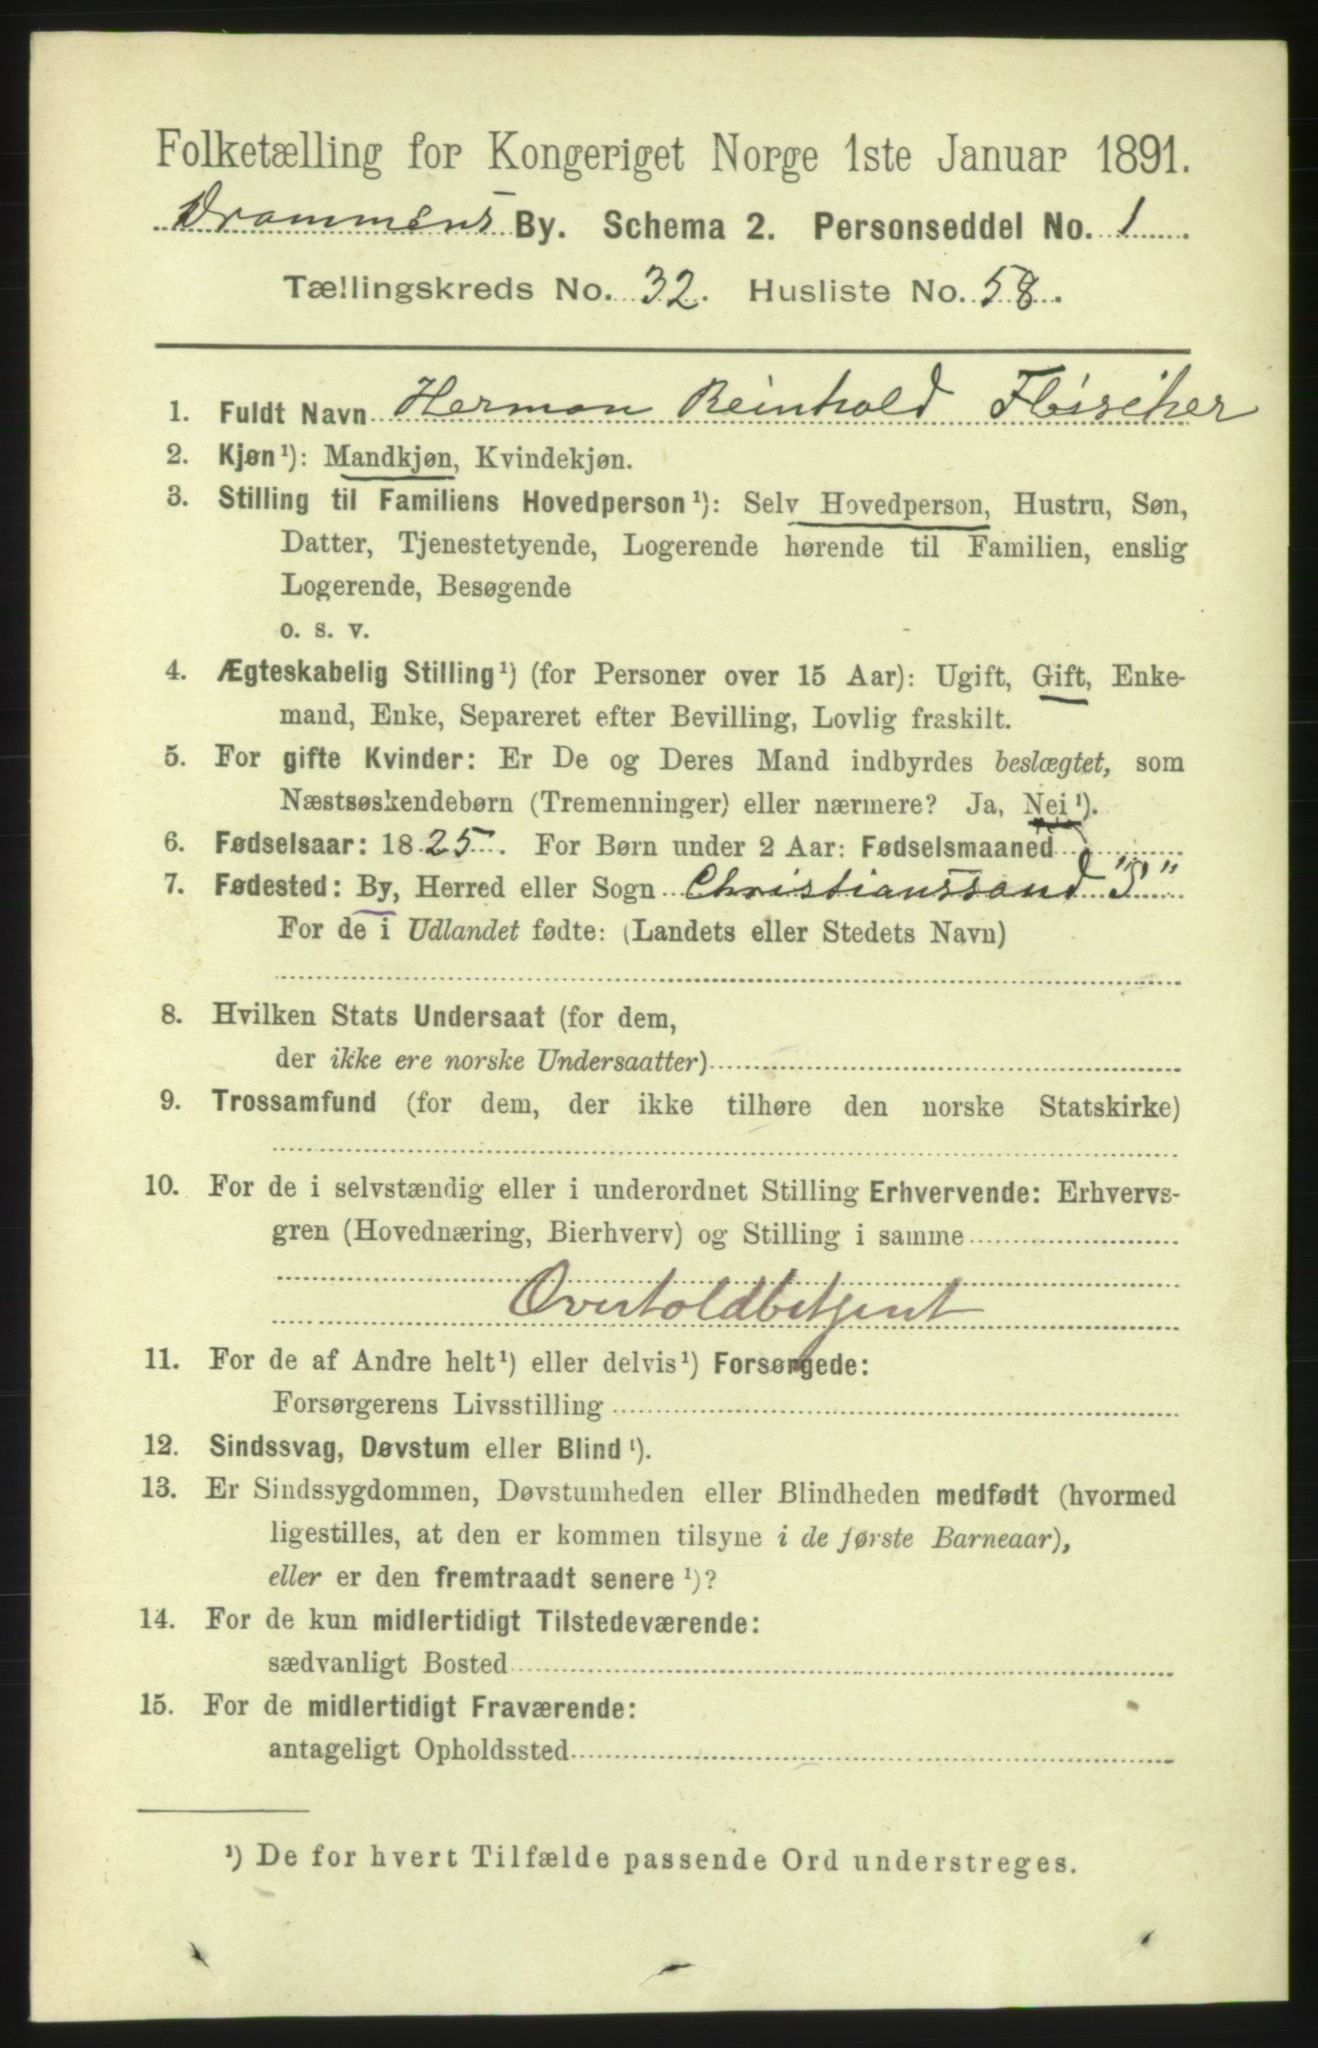 Folketælling for Kongeriget Norge 1ste Januar 1891.
Drammens By. Schema 2. Personseddel No. 1
Tællingskreds No. 32. Husliste No. 58.
1. Fuldt Navn Herman Reinhold Fleischer
2. Kjøn¹): Mandkjøn, Kvindekjøn.
3. Stilling til Familiens Hovedperson¹): Selv Hovedperson, Hustru, Søn,
Datter, Tjenestetyende, Logerende hørende til Familien, enslig
Logerende, Besøgende
o. s. v.
4. Ægteskabelig Stilling¹) (for Personer over 15 Aar): Ugift, Gift, Enke-
mand, Enke, Separeret efter Bevilling, Lovlig fraskilt.
5. For gifte Kvinder: Er De og Deres Mand indbyrdes beslægtet, som
Næstsøskendebørn (Tremenninger) eller nærmere? Ja, Nei¹).
6. Fødselsaar: 1825. For Børn under 2 Aar: Fødselsmaaned
7. Fødested: By, Herred eller Sogn Christianssand "S"
For de i Udlandet fødte: (Landets eller Stedets Navn)
8. Hvilken Stats Undersaat (for dem,
der ikke ere norske Undersaatter)
9. Trossamfund (for dem, der ikke tilhøre den norske Statskirke)
10. For de i selvstændig eller i underordnet Stilling Erhvervende: Erhvervs-
gren (Hovednæring, Bierhverv) og Stilling i samme
Overtoldbetjent
11. For de af Andre helt¹) eller delvis¹) Forsørgede:
Forsørgerens Livsstilling
12. Sindssvag, Døvstum eller Blind¹).
13. Er Sindssygdommen, Døvstumheden eller Blindheden medfødt (hvormed
ligestilles, at den er kommen tilsyne i de første Barneaar),
eller er den fremtraadt senere¹)?
14. For de kun midlertidigt Tilstedeværende:
sædvanligt Bosted
15. For de midlertidigt Fraværende:
antageligt Opholdssted
¹) De for hvert Tilfælde passende Ord understreges.